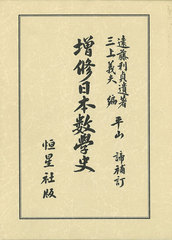 遠藤利貞遺著
三上義夫編
平山諦補訂
増修日本数學史
恒星社版